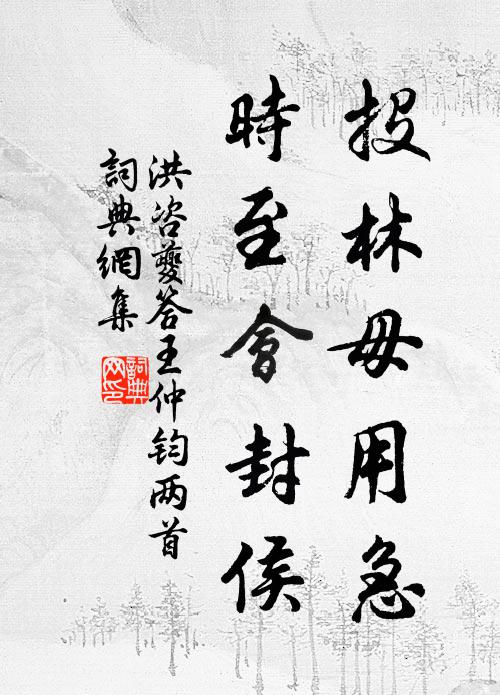 投林毋用急
時至會封侯
洪咨夔答王仲鈞两首
詞典網集
詞典网印